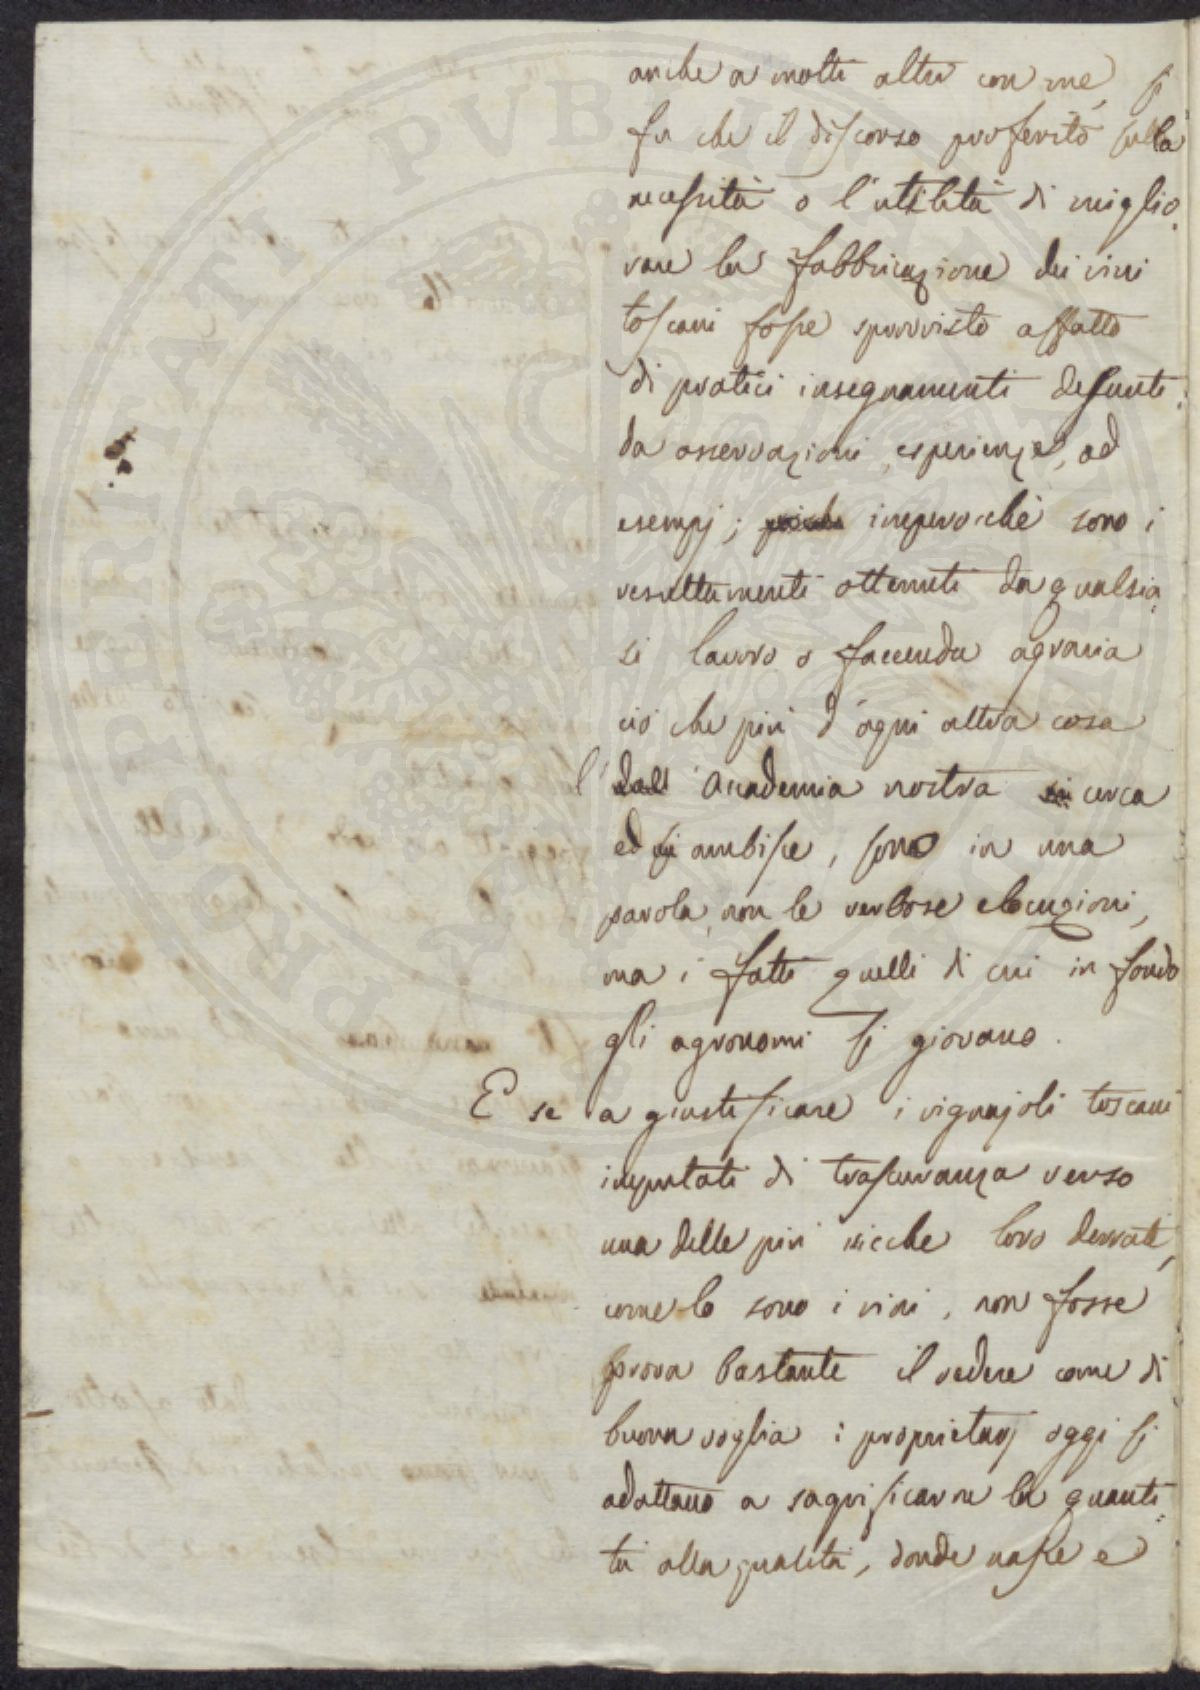 anche a molti altri con me, si
fu che il discorso proferito sulla
necessità o l'utilità di miglio
rare la fabbricazione dei vini
toscani fosse sprovvisto affatto
di pratici insegnamenti desunti
da osservazioni, esperienze, ad
esempj; poichè imperocchè sono i
resultamenti ottenuti da qualsia
si lavoro o faccenda agraria
ciò che più d'ogni altra cosa
l' dall Accademia nostra si cerca
ed si ambisce, sono in una
parola, non le verbose elocuzioni,
ma i fatti quelli di cui in fondo
gli agronomi si giovano.
E se a giustificare i vignajoli toscani
imputati di trascuranza verso
una delle più ricche loro derrate,
come lo sono i vini, non fosse
prova bastante il vedere come di
buona voglia i proprietarj oggi si
adattano a sagrificarne la quanti
tà alla qualità, donde nasce e
PROSPERITATI PVBLICAE